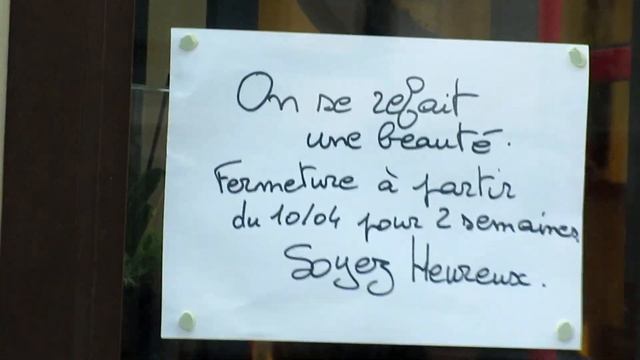 On se refait
une beauté.
Fermeture à partir
du 10/04 pour 2 semaines
Soyez Heureux.